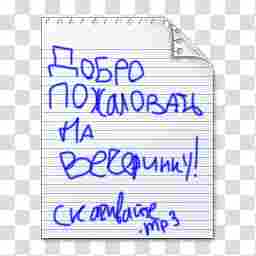 ДОБРО
ПОЖАЛОВАТЬ
НА
ВЕЧЕРИНКУ!
Скачивайте
.mp3